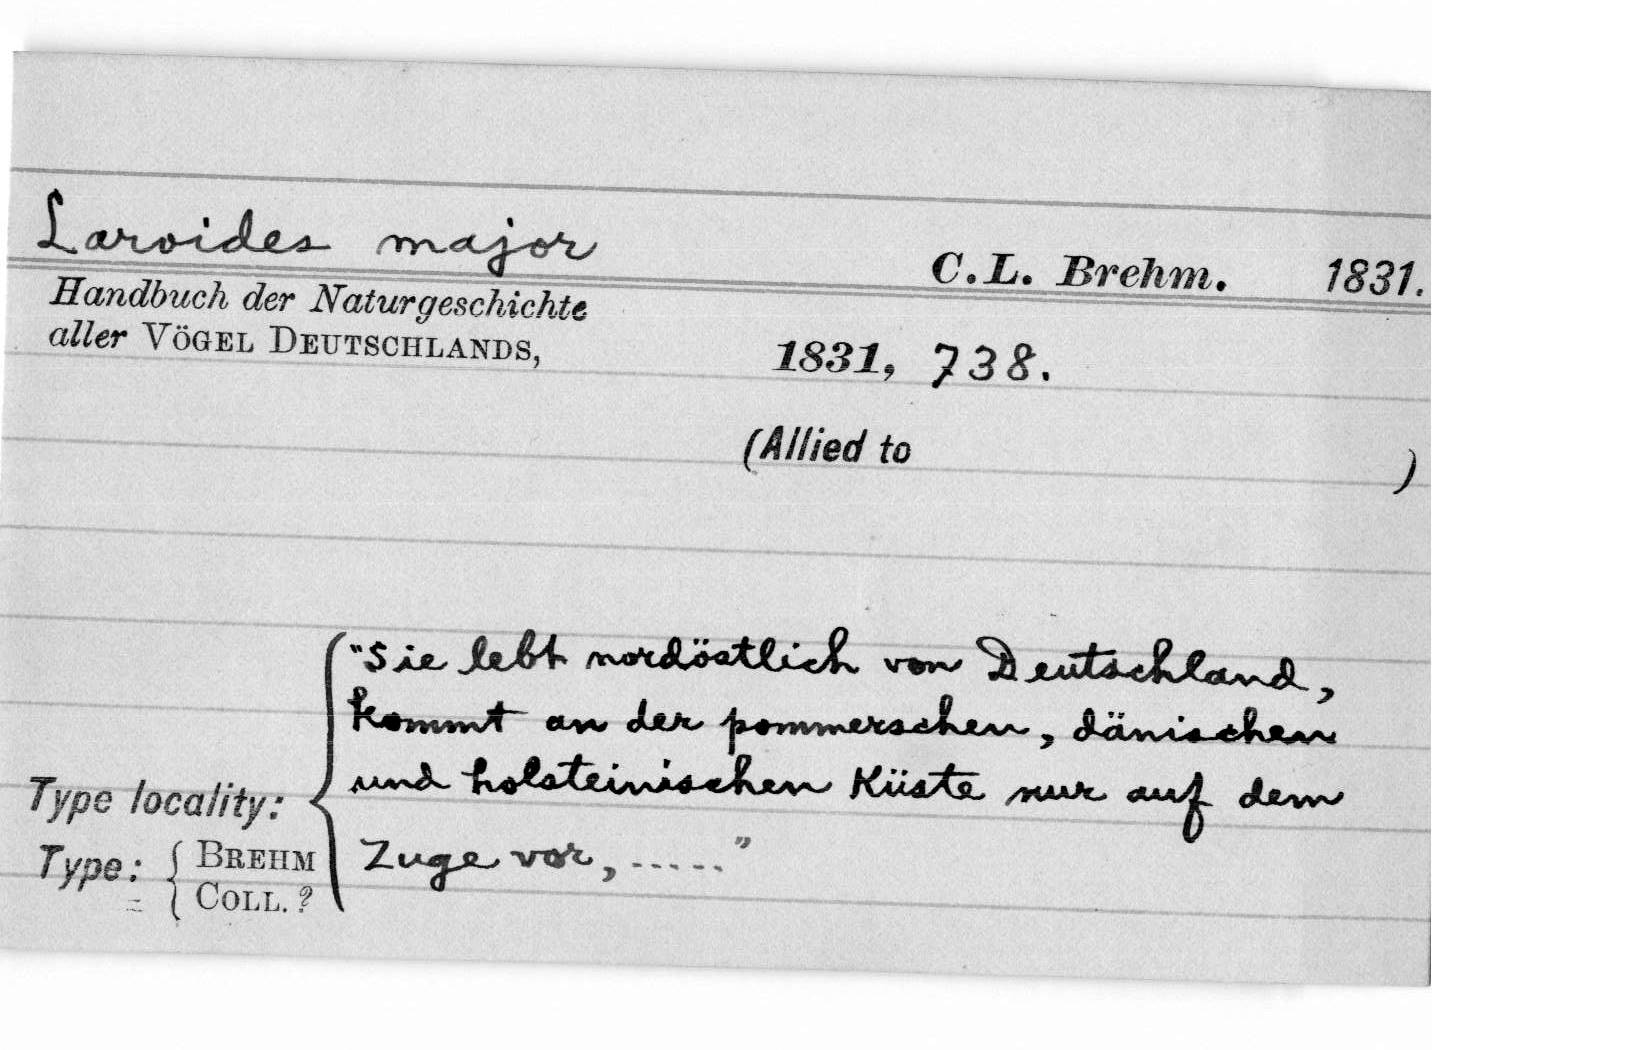 Laroides major C.L. Brehm. 1831.
Handbuch der Naturgeschichte
aller VÖGEL DEUTSCHLANDS, 1831, 738.
(Allied to )
"Sie lebt nordöstlich von Deutschland,
kommt an der pommerschen, dänischen
und holsteinischen Küste nur auf dem
Type locality:
Zuge vor, ....."
Type: BREHM
COLL. ?